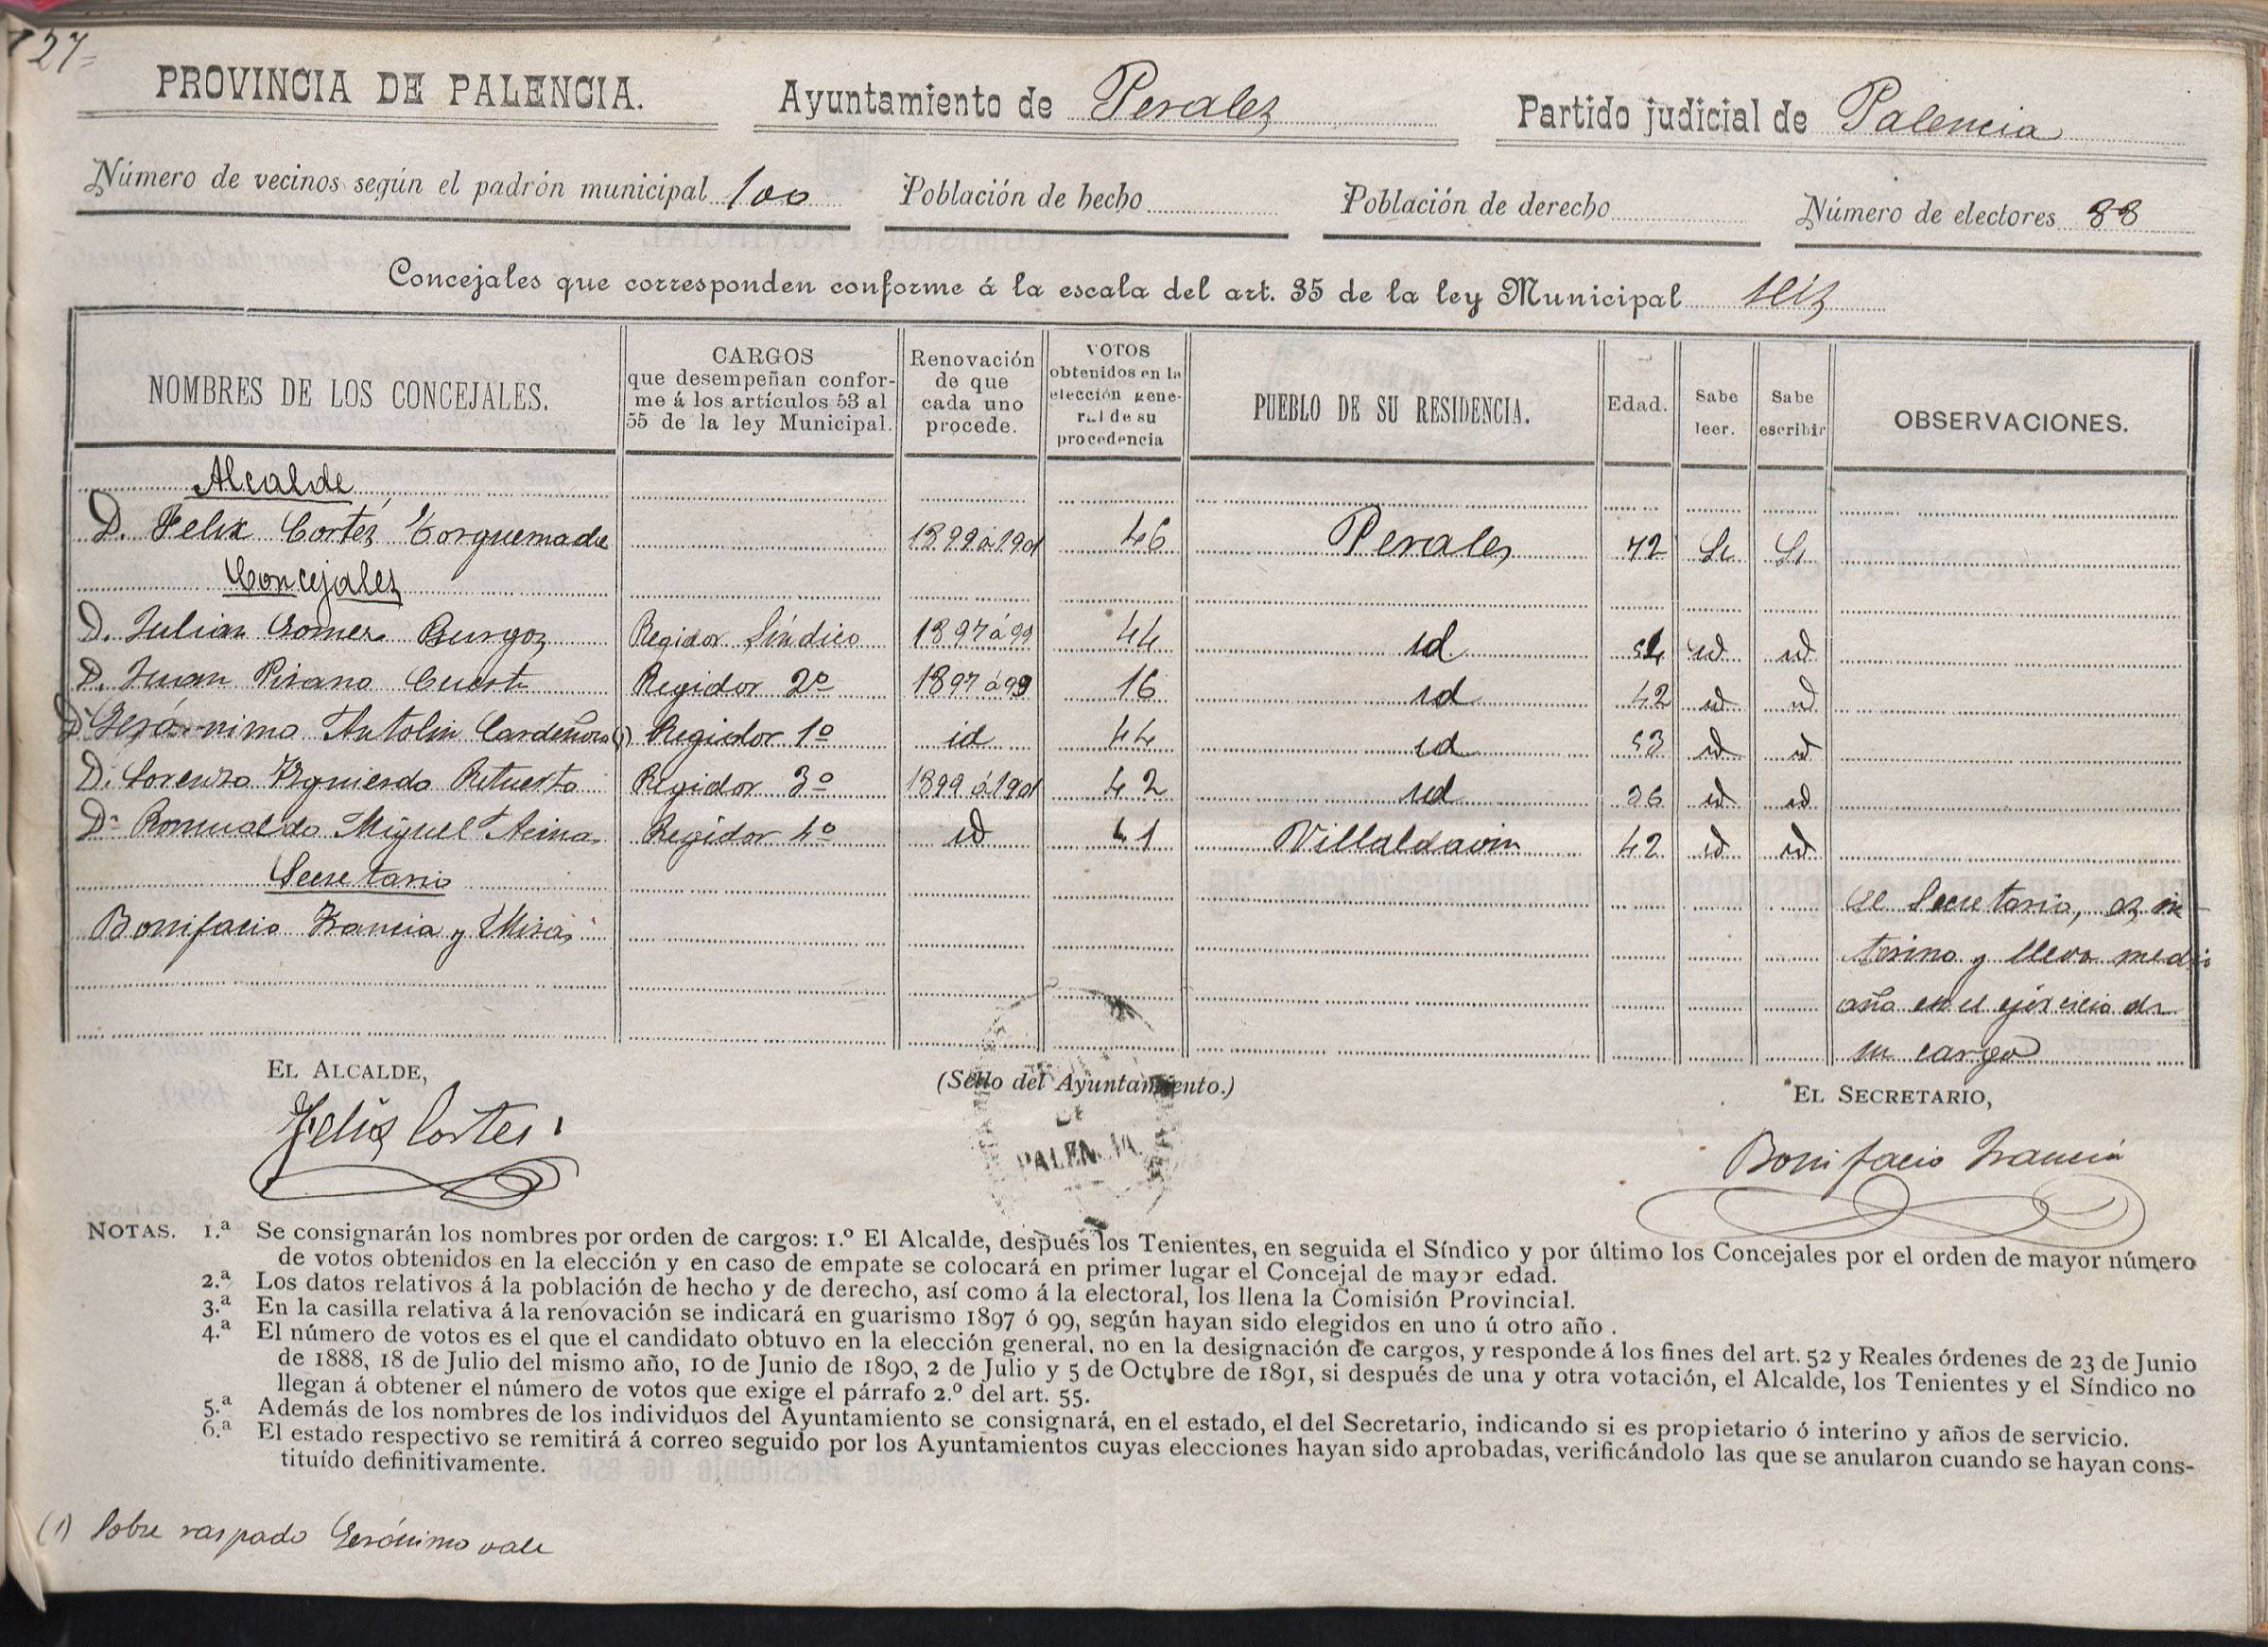 127=
PROVINCIA DE PALENCIA. Ayuntamiento de Perales Partido judicial de Palencia
Número de vecinos según el padrón municipal 100 Población de hecho Población de derecho Número de electores 88
Concejales que corresponden conforme á la escala del art. 35 de la ley Municipal seis
NOMBRES DE LOS CONCEJALES. CARGOS que desempeñan conforme á los artículos 53 al 55 de la ley Municipal. Renovación de que cada uno procede. VOTOS obtenidos en la elección general de su procedencia PUEBLO DE SU RESIDENCIA. Edad. Sabe leer. Sabe escribir OBSERVACIONES.
Alcalde
D. Felix Cortés Torquemada 1899 á 1901 46 Perales 72 Si Si
Concejales
D. Julian Gomez Burgos Regidor Síndico 1897 á 99 44 id id id
D. Juan Pisano Cuesta Regidor 2º 1897 á 99 16 id 42 id id
D. Gerónimo Antolin Cardeñosa (1) Regidor 1º id 44 id 53 id id
D. Lorenzo Izquierdo Retuerto Regidor 3º 1899 á 1901 42 id 36 id id
Dn Romualdo Miguel Regidor 4º id 41 Villaldavin 42 id id
Secretario
Bonifacio Francia y El Secretario, es in-
terino y lleva medio
año en el ejercicio de
su cargo
EL ALCALDE, (Sello del Ayuntamiento.) EL SECRETARIO,
Felix Cortes DE PALENCIA Bonifacio Francia
NOTAS. 1.ª Se consignarán los nombres por orden de cargos: 1.º El Alcalde, después los Tenientes, en seguida el Síndico y por último los Concejales por el orden de mayor número
de votos obtenidos en la elección y en caso de empate se colocará en primer lugar el Concejal de mayor edad.
2.ª Los datos relativos á la población de hecho y de derecho, así como á la electoral, los llena la Comisión Provincial.
3.ª En la casilla relativa á la renovación se indicará en guarismo 1897 ó 99, según hayan sido elegidos en uno ú otro año .
4.ª El número de votos es el que el candidato obtuvo en la elección general, no en la designación de cargos, y responde á los fines del art. 52 y Reales órdenes de 23 de Junio
de 1888, 18 de Julio del mismo año, 10 de Junio de 1890, 2 de Julio y 5 de Octubre de 1891, si después de una y otra votación, el Alcalde, los Tenientes y el Síndico no
llegan á obtener el número de votos que exige el párrafo 2.º del art. 55.
5.ª Además de los nombres de los individuos del Ayuntamiento se consignará, en el estado, el del Secretario, indicando si es propietario ó interino y años de servicio.
6.ª El estado respectivo se remitirá á correo seguido por los Ayuntamientos cuyas elecciones hayan sido aprobadas, verificándolo las que se anularon cuando se hayan cons-
tituído definitivamente.
(1) Sobre raspado Gerónimo vale